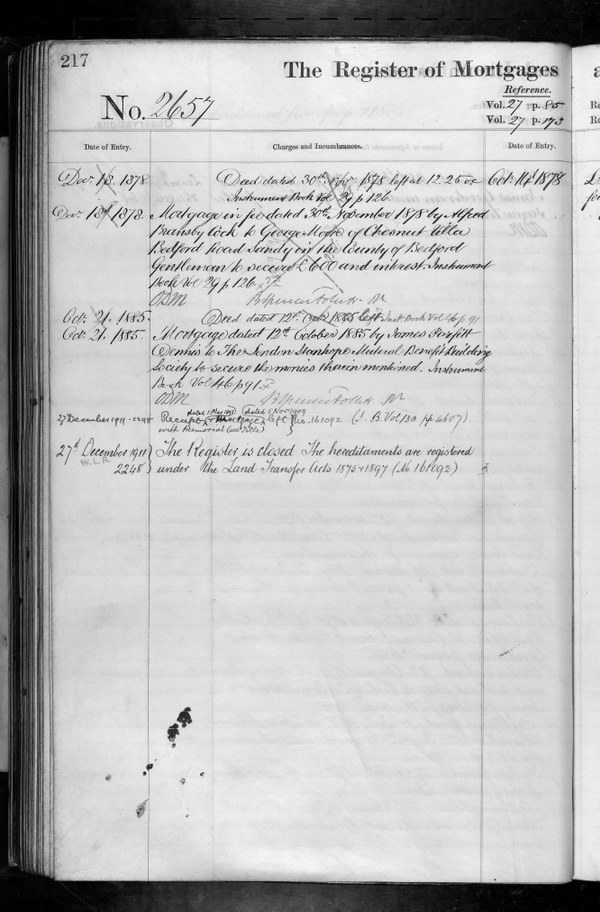 217
The Register of Mortgages
Reference.
No. 2657
Vol. 27 p. 85
Vol. 27 p. 173
Date of Entry.
Charges and Incumbrances.
Date of Entry.
Decr. 18. 1878
Deed dated 30th Novr. 1878 left at 12.25
Instrument Book Vol 29 p 126.
Decr. 18th 1878.
Mortgage in fee dated 30th November 1878 by Alfred
Bransby Cock to George Moore of Chesnut Villa
Bedford Road Sandy in the County of Bedford
Gentleman to secure £600 and interest. Instrument
Book Vol 29 p 126.
Octr. 21. 1885.
Deed dated 12th Octr 1885 left Inst Book Vol 46 p 91
Octr. 21. 1885.
Mortgage dated 12th October 1885 by James Perfett
Dennis to The London Stanhope Mutual Benefit Building
Society to secure the monies therein mentioned. Instrument
Book Vol 46 p 91
27 December 1911 - 2248
dated 1 May 1893 dated 5 Novr 1902
Receipt, Mortgage left No. 161092 (I. B. Vol 130 p 4607)
with Memorial
27th December 1911
2248
The Register is closed The hereditaments are registered
under the Land Transfer Acts 1875 & 1897 (No 161092)